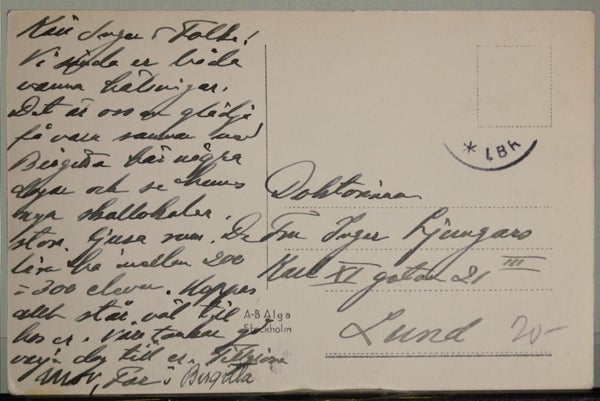 Kära Inger o Folke!
Vi sända er båda
varma hälsningar.
Det är oss en glädje
få vara samman med
Birgitta här några
dagar och se hennes
nya skollokaler,
stora, ljusa rum. De
lära ha mellan 200
- 300 elever. Hoppas
allt står väl till
hos er. Våra tankar gå
varje dag till er.
Mor, Far o Birgitta
A-B Alga
Stockholm
* LBR
Doktorinnan
Fru Inger Ljungars
Karl XI gatan 21 III
Lund 20-